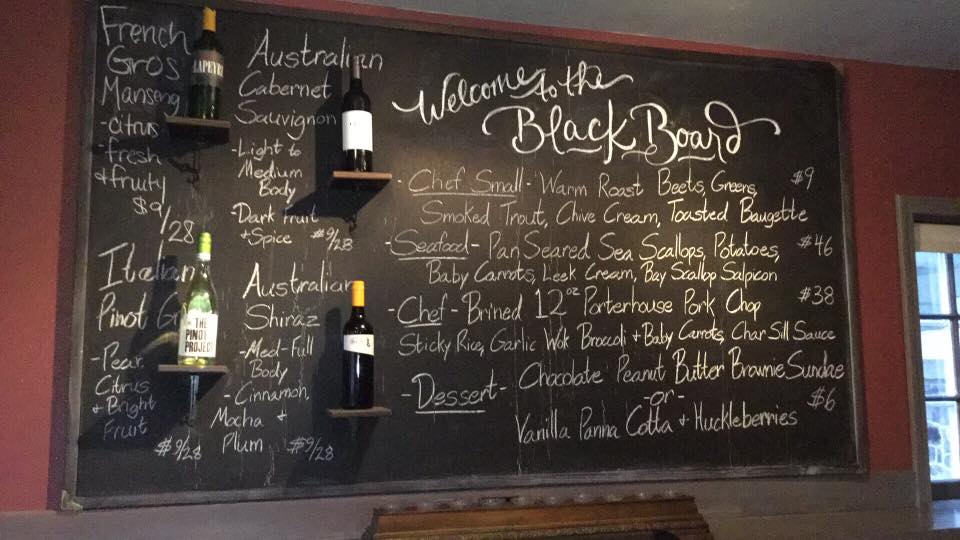 French
Gros
Manseng
-citrus
-fresh
+ fruity
$9/28
Italian
Pinot G
-Pear
Citrus
+ Bright
Fruit
$9/28
THE
PINOT
PROJECT
Australian
Cabernet
Sauvignon
-Light to
Medium
Body
-Dark fruit
+ Spice $9/28
Australian
Shiraz
-Med-Full
Body
-Cinnamon,
Mocha +
Plum $9/28
Welcome to the
Black Board
-Chef Small- Warm Roast Beets, Greens, $9
Smoked Trout, Chive Cream, Toasted Baugette
-Seafood- Pan Seared Sea Scallops, Potatoes, $46
Baby Carrots, Leek Cream, Bay Scallop Salpicon
-Chef- Brined 12oz Porterhouse Pork Chop $38
Sticky Rice, Garlic Wok Broccoli + Baby Carrots, Char Sill Sauce
-Dessert- Chocolate Peanut Butter Brownie Sundae
-or- $6
Vanilla Panna Cotta + Huckleberries